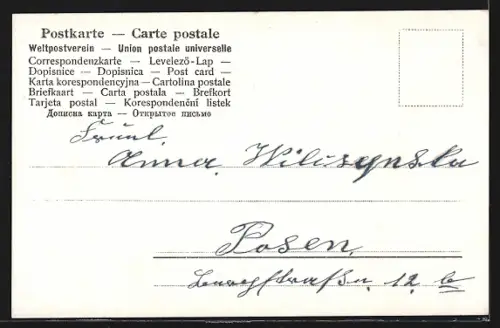 Postkarte — Carte postale
Weltpostverein — Union postale universelle
Correspondenzkarte — Levelező-Lap —
Dopisnice — Dopisnica — Post card —
Karta korespondencyjna — Cartolina postale
Briefkaart — Carta postala — Brefkort
Tarjeta postal — Korespondenční listek
Дописна карта — Открытое письмо
Fräul.
Anna Wilczynska
Posen
12 b